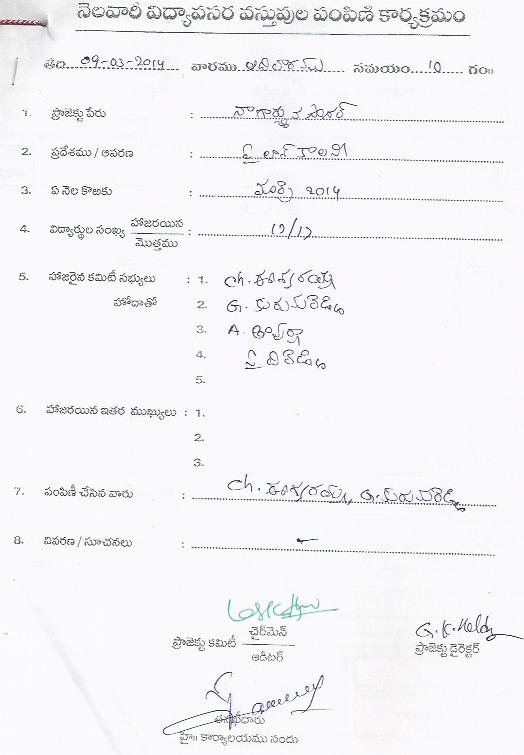 నెలవారీ విద్యావసర వస్తువుల పంపిణీ కార్యక్రమం
తేది 09-03-2014 వారము ఆదివారము సమయం 10 గం॥
1. ప్రాజెక్టు పేరు : నాగార్జున సాగర్
2. ప్రదేశము / ఆవరణ : పైలాన్ కాలని
3. ఏ నెల కొఱకు : మార్చి 2014
4. విద్యార్థుల సంఖ్య హాజరయిన / మొత్తము : 17/17
5. హాజరైన కమిటీ సభ్యులు : 1. Ch.
హోదాతో 2. G.
3. A.
4.
5.
6. హాజరయిన ఇతర ముఖ్యులు : 1.
2.
3.
7. పంపిణీ చేసిన వారు : Ch. G.
8. వివరణ / సూచనలు : -
ప్రాజెక్టు కమిటీ చైర్‌మెన్ / ఆడిటర్
G.K. Reddy
ప్రాజెక్టు డైరెక్టర్
హై॥ కార్యాలయము నందు